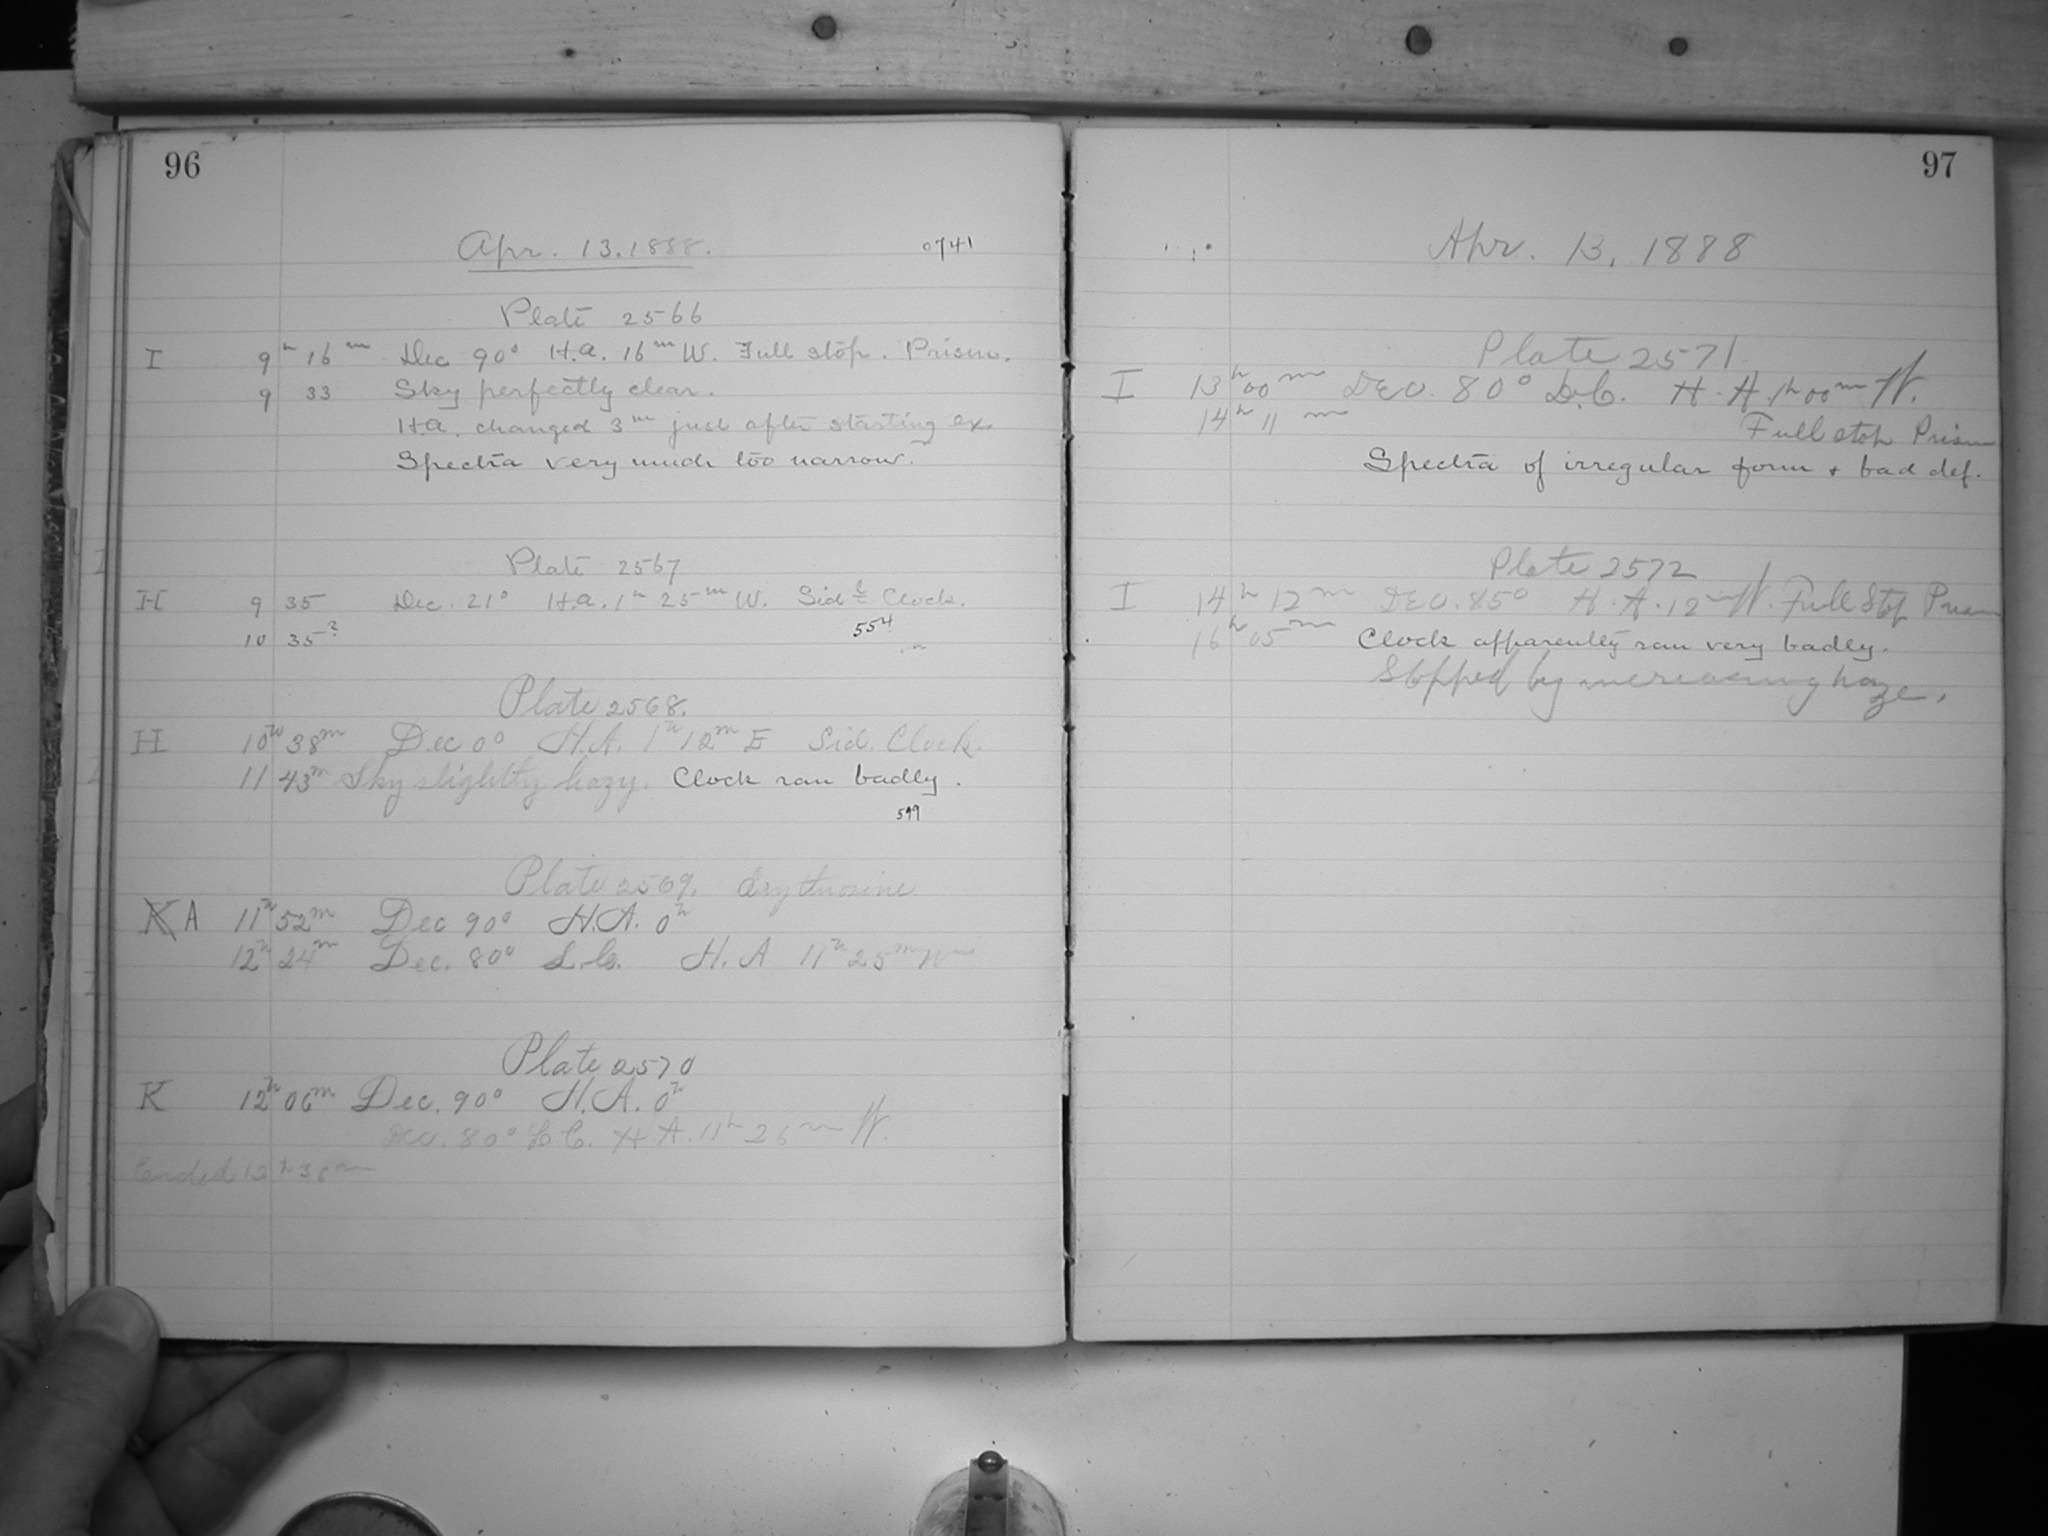 96
Apr. 13. 1888. 0741
Plate 2566
I 9h 16m Dec 90° H.A. 16m W. Full stop. Prism.
9 33 Sky perfectly clear.
H.A. changed 3m just after starting ex.
Spectra very much too narrow.
Plate 2567
H 9 35 Dec. 21° H.A. 1h 25m W. Sid'l Clock.
10 35? 554
Plate 2568.
H 10h 38m Dec 0° H.A. 1h 12m E Sid. Clock.
11 43m Sky slightly hazy. Clock ran badly.
599
Plate 2569. Erythrosine
K A 11h 52m Dec 90° H.A. 0h
12h 24m Dec. 80° L.C. H.A 11h 25m W
Plate 2570
K 12h 06m Dec. 90° H.A. 0h
Dec. 80° L.C. H.A. 11h 26m W.
Ended 12h 36m
97
Apr. 13, 1888
Plate 2571
I 13h 00m Dec. 80° L.C. H.A. 1h 00m W.
14h 11m Full stop Prism
Spectra of irregular form & bad def.
Plate 2572
I 14h 12m Dec. 85° H.A. 12m W. Full Stop Prism
16h 05m Clock apparently ran very badly.
Stopped by increasing haze.